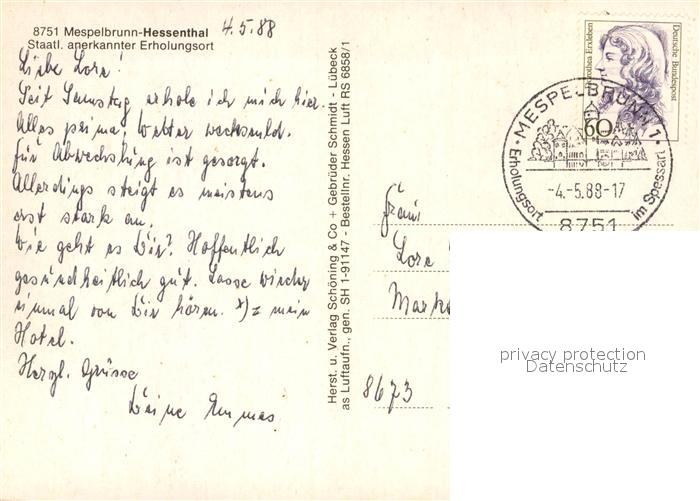 8751 Mespelbrunn-Hessenthal 4.5.88
Staatl. anerkannter Erholungsort
Liebe Lore!
Seit Samstag erhole ich mich hier.
Alles prima, Wetter wechselnd.
für Abwechslung ist gesorgt.
Allerdings steigt es meistens
erst stark an.
Wie geht es Dir? Hoffentlich
gesundheitlich gut. Lasse wieder
einmal von Dir hören. *) = mein
Hotel.
Herzl. Grüsse
Deine
Herst. u. Verlag Schöning & Co + Gebrüder Schmidt - Lübeck
as Luftaufn., gen. SH 1-91147 - Bestellnr. Hessen Luft RS 6858/1
Dorothea Erxleben
Deutsche Bundespost
60
MESPELBRUNN 1
Erholungsort im Spessart
-4.-5.88-17
8751
Frau
Lore
Markt
8673
privacy protection
Datenschutz